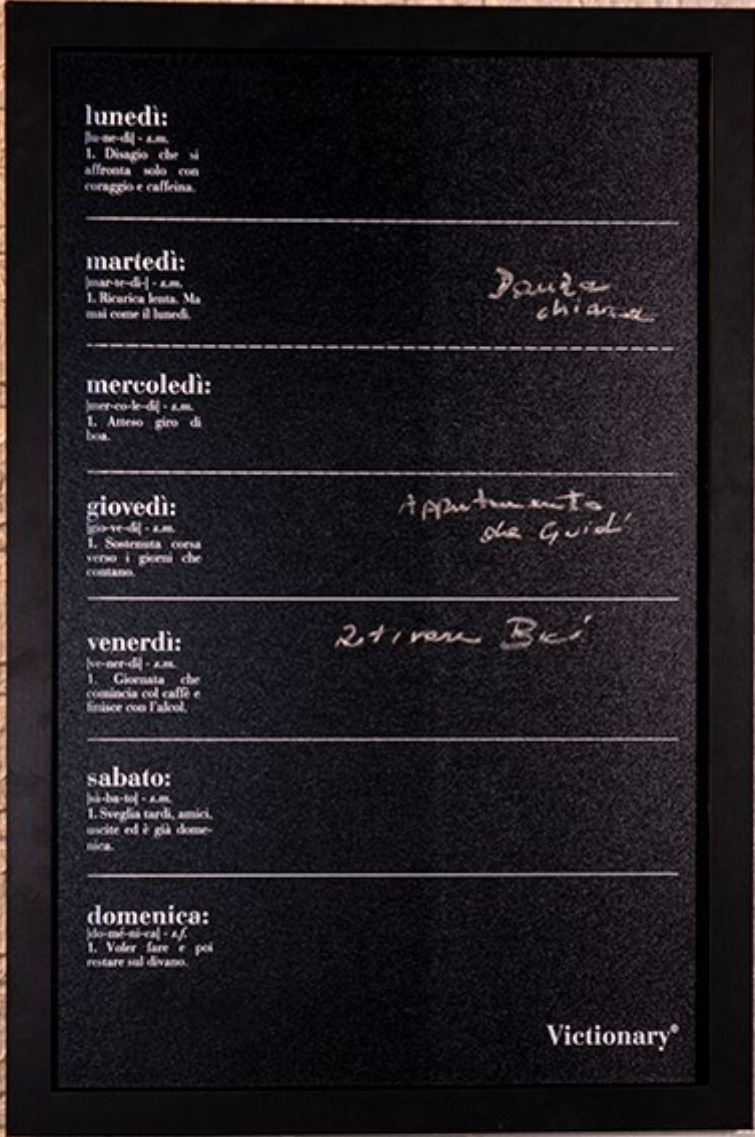 lunedì:
|lu-ne-dì| - s.m.
1. Disagio che si
affronta solo con
coraggio e caffeina.
martedì:
|mar-te-dì-| - s.m.
1. Ricarica lenta. Ma
mai come il lunedì.
Danza
chiara
mercoledì:
|mer-co-le-dì| - s.m.
1. Atteso giro di
boa.
giovedì:
|gio-ve-dì| - s.m.
1. Sostenuta corsa
verso i giorni che
contano.
Appuntamento
da Guidi
venerdì:
|ve-ner-dì| - s.m.
1. Giornata che
comincia col caffè e
finisce con l'alcol.
Ritirare Bici
sabato:
|sà-ba-to| - s.m.
1. Sveglia tardi, amici,
uscite ed è già dome-
nica.
domenica:
|do-mé-ni-ca| - s.f.
1. Voler fare e poi
restare sul divano.
Victionary®